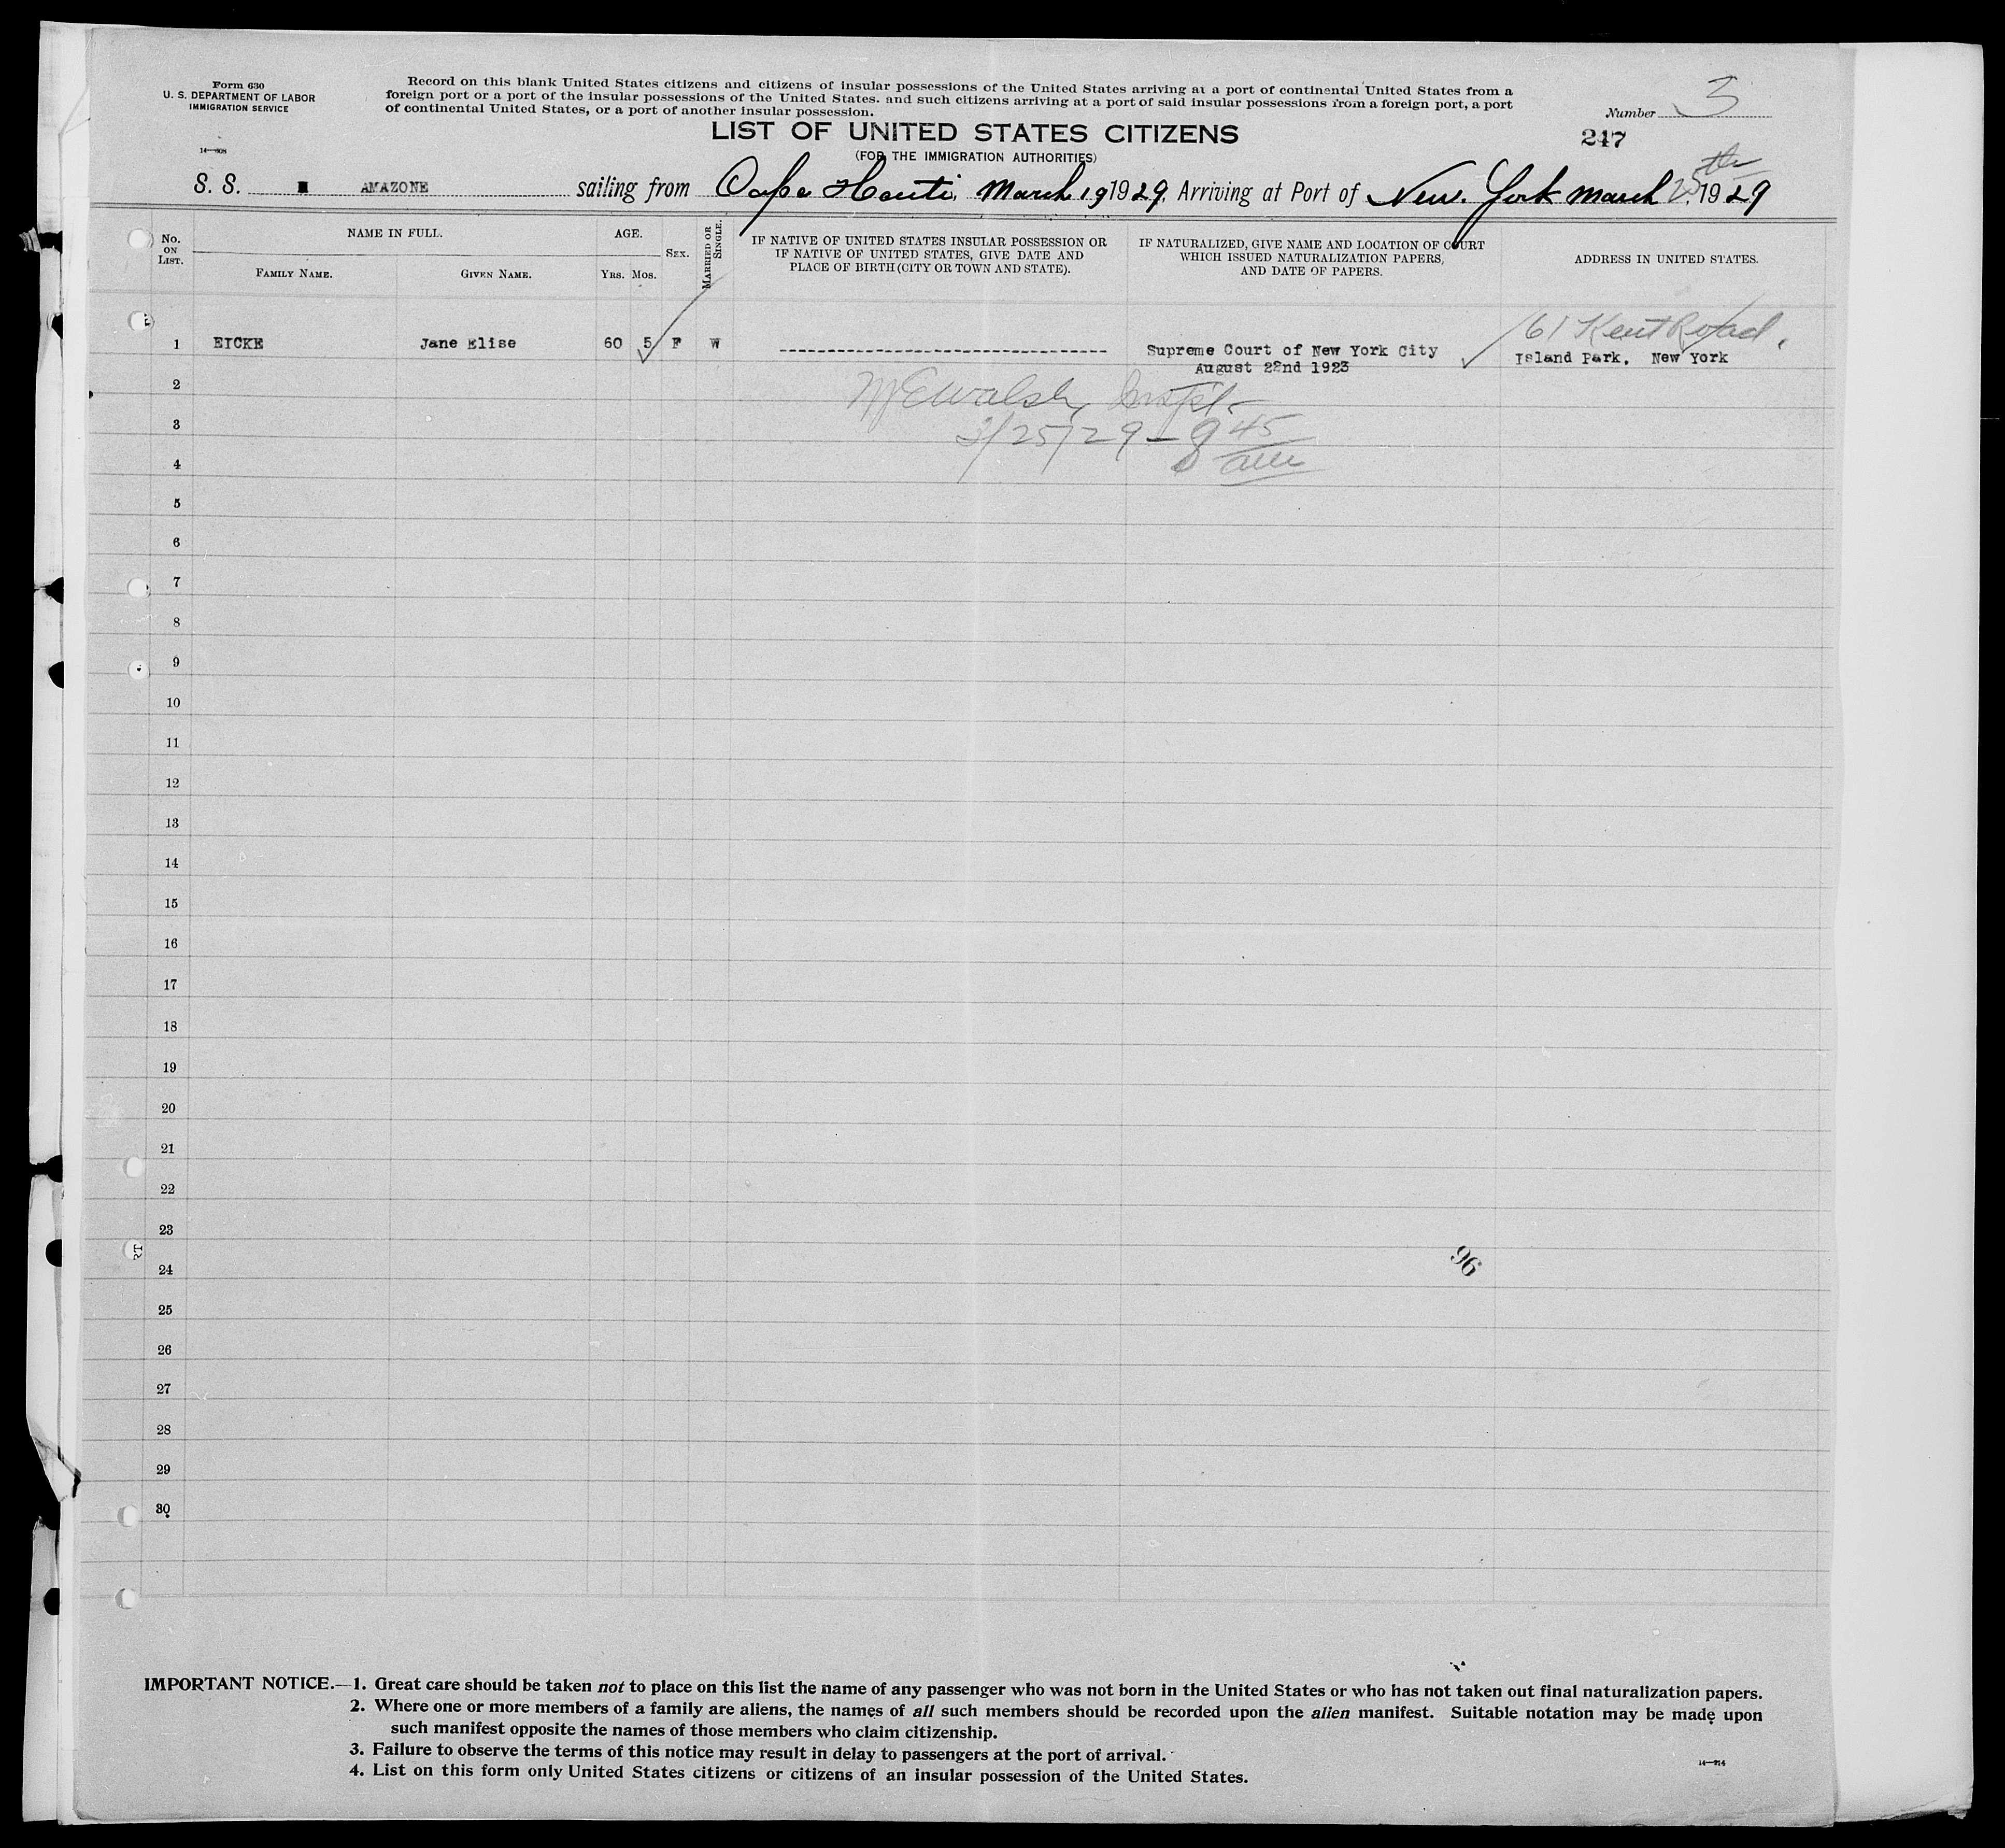 Form 630
U. S. DEPARTMENT OF LABOR
IMMIGRATION SERVICE
14—808
Record on this blank United States citizens and citizens of insular possessions of the United States arriving at a port of continental United States from a
foreign port or a port of the insular possessions of the United States. and such citizens arriving at a port of said insular possessions from a foreign port, a port
of continental United States, or a port of another insular possession.
Number 3
247
LIST OF UNITED STATES CITIZENS
(FOR THE IMMIGRATION AUTHORITIES)
S. S. AMAZONE sailing from Cape Hauti, March 19 1929, Arriving at Port of New. York March 25th 1929
No. ON LIST.
NAME IN FULL.
FAMILY NAME.
GIVEN NAME.
AGE.
YRS. MOS.
SEX.
MARRIED OR SINGLE.
IF NATIVE OF UNITED STATES INSULAR POSSESSION OR
IF NATIVE OF UNITED STATES, GIVE DATE AND
PLACE OF BIRTH (CITY OR TOWN AND STATE).
IF NATURALIZED, GIVE NAME AND LOCATION OF COURT
WHICH ISSUED NATURALIZATION PAPERS,
AND DATE OF PAPERS.
ADDRESS IN UNITED STATES.
61 Kent Road,
1 EICKE Jane Elise 60 5 F W Supreme Court of New York City Island Park, New York
August 22nd 1923
2 Walsh, Inspt.
3 3/25/29 – 8 45
4 am
5
6
7
8
9
10
11
12
13
14
15
16
17
18
19
20
21
22
23
RT
96
24
25
26
27
28
29
30
IMPORTANT NOTICE.—1. Great care should be taken not to place on this list the name of any passenger who was not born in the United States or who has not taken out final naturalization papers.
2. Where one or more members of a family are aliens, the names of all such members should be recorded upon the alien manifest. Suitable notation may be made upon
such manifest opposite the names of those members who claim citizenship.
3. Failure to observe the terms of this notice may result in delay to passengers at the port of arrival.
4. List on this form only United States citizens or citizens of an insular possession of the United States.
14—914